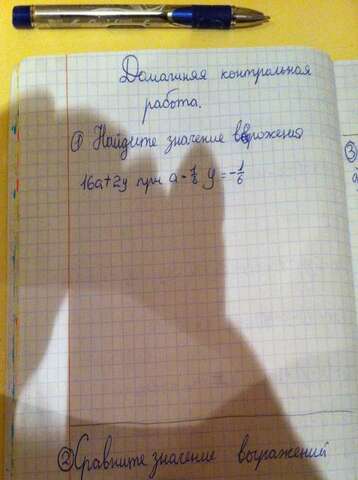 Домашняя контрольная
работа.
① Найдите значение вырожения
16а+2у при а = 1/8 у = -1/6
③
②Сравните значение выражений